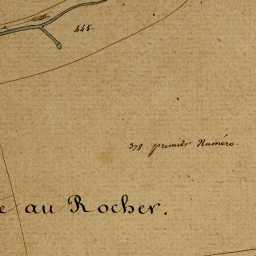 445.
378 premier Numéro.
e au Rocher.